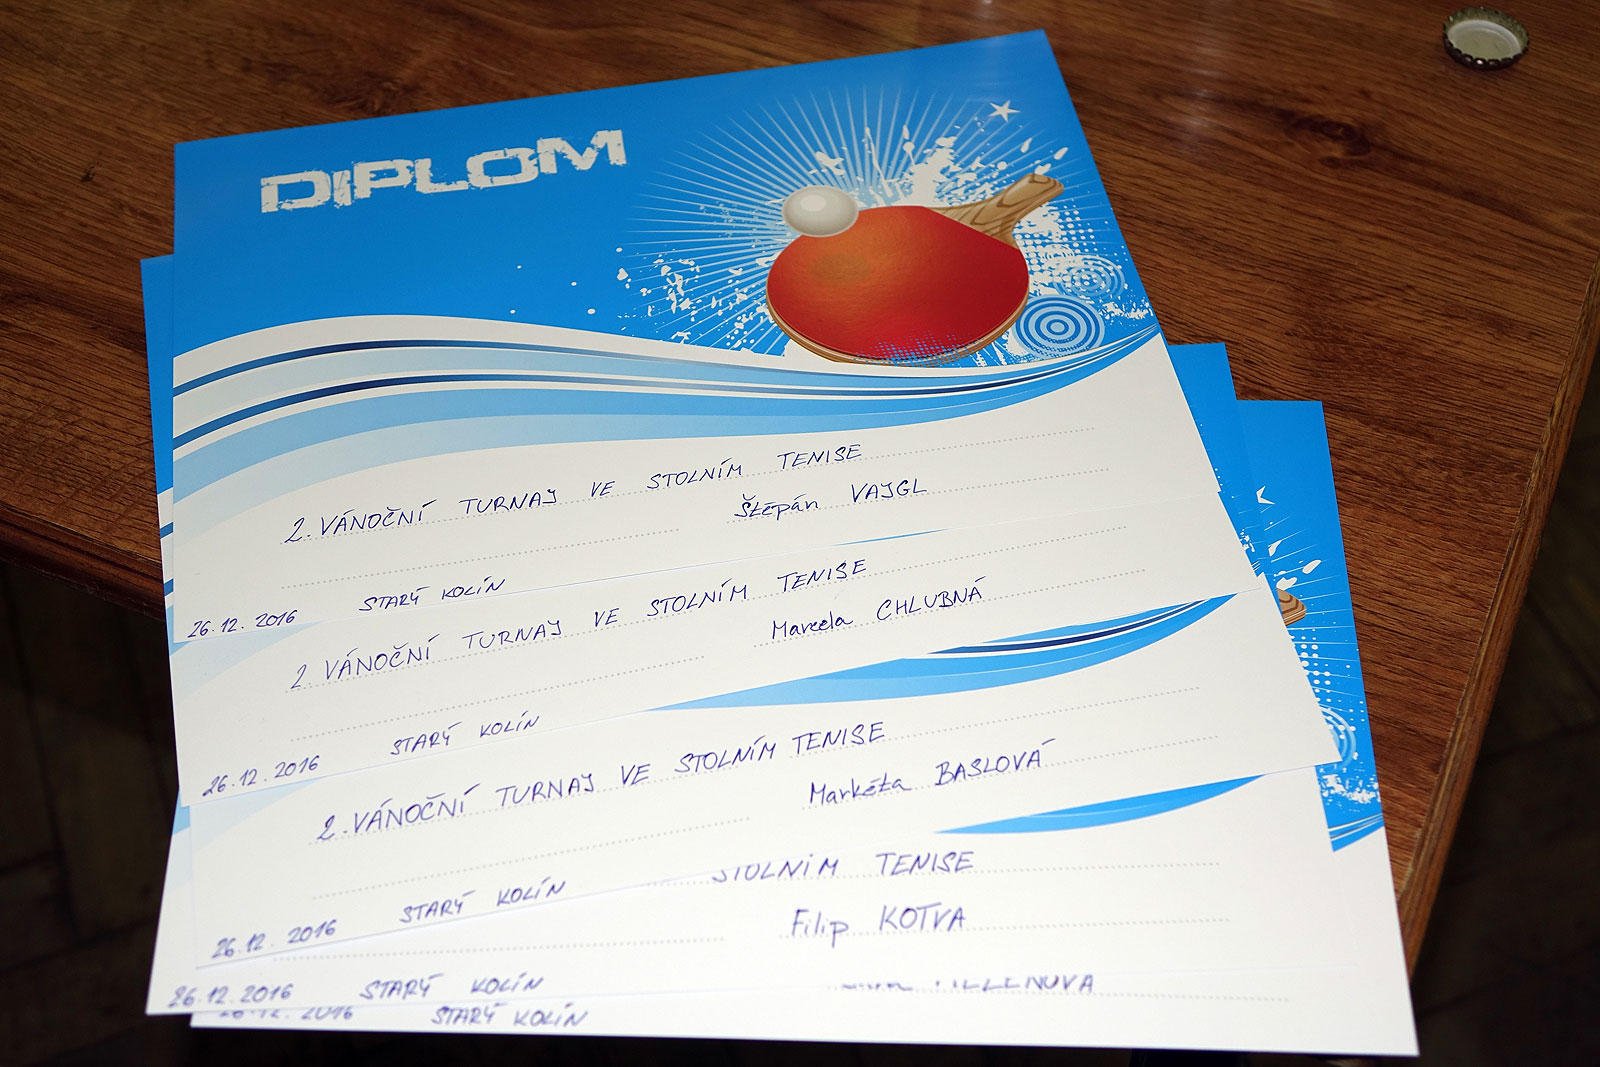 DIPLOM
2. VÁNOČNÍ TURNAJ VE STOLNÍM TENISE
Štěpán VAJGL
26.12.2016 STARÝ KOLÍN
2. VÁNOČNÍ TURNAJ VE STOLNÍM TENISE
Marcela CHLUBNÁ
26.12.2016 STARÝ KOLÍN
2. VÁNOČNÍ TURNAJ VE STOLNÍM TENISE
Markéta BASLOVÁ
26.12.2016 STARÝ KOLÍN
STOLNÍM TENISE
Filip KOTVA
26.12.2016 STARÝ KOLÍN
26.12.2016 STARÝ KOLÍN